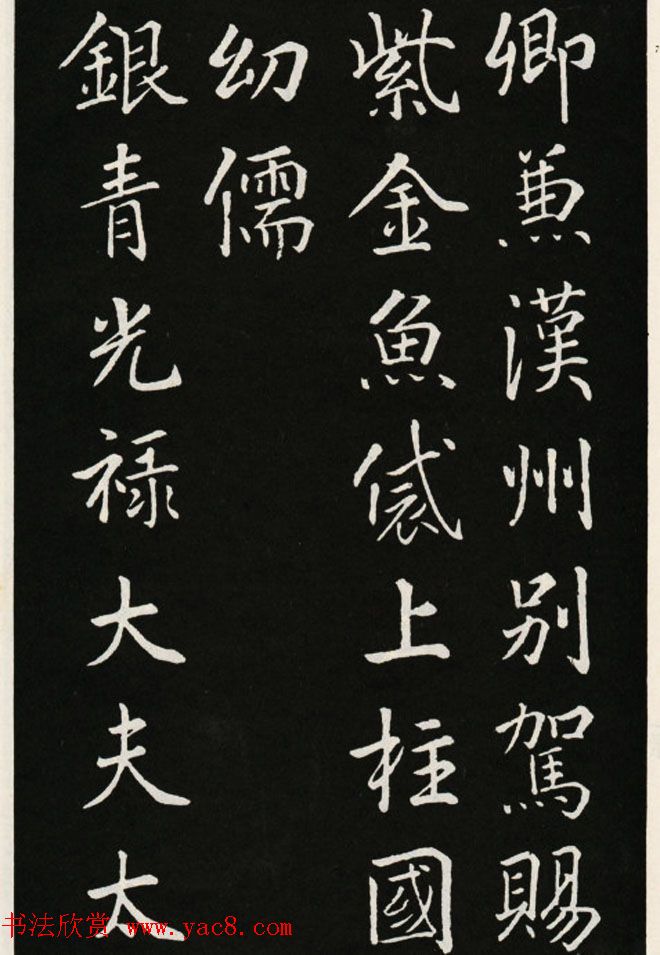 卿兼漢州别駕賜
紫金魚袋上柱國
幼儒
銀青光禄大夫太
书法欣赏 www.yac8.com